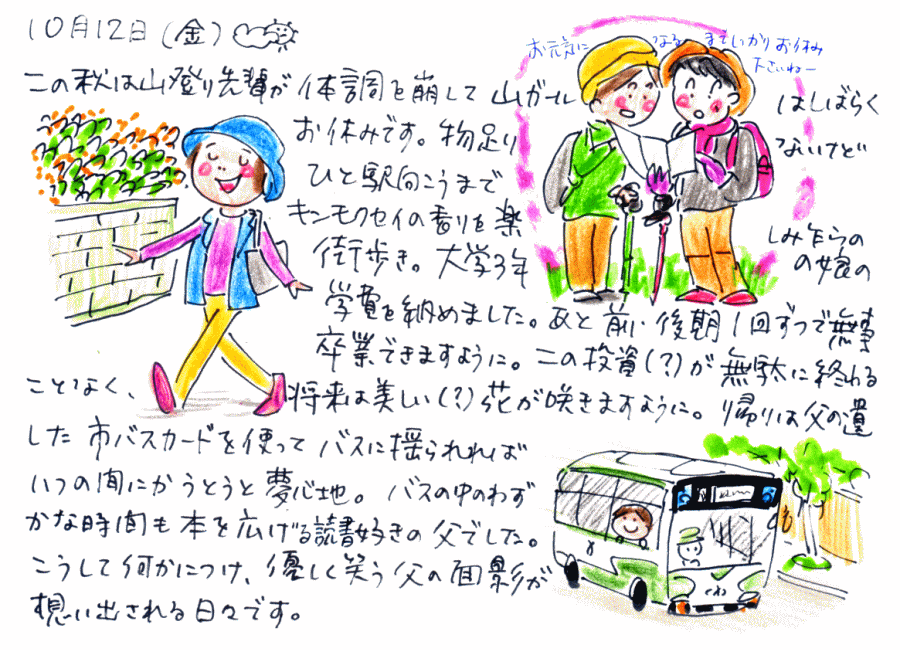 10月12日(金)
お元気になるまでしっかりお休み
下さいねー
この秋は山登り先輩が体調を崩して山ガールはしばらく
お休みです。物足りないけど
ひと駅向こうまで
キンモクセイの香りを楽しみ乍らの
街歩き。大学3年の娘の
学費を納めました。あと前・後期1回ずつで無事
卒業できますように。この投資(?)が無駄に終わる
ことなく、将来は美しい(?)花が咲きますように。帰りは父の遺
した市バスカードを使ってバスに揺られれば
いつの間にかうとうと夢心地。バスの中のわず
かな時間も本を広げる読書好きの父でした。
こうして何かにつけ、優しく笑う父の面影が
想い出される日々です。